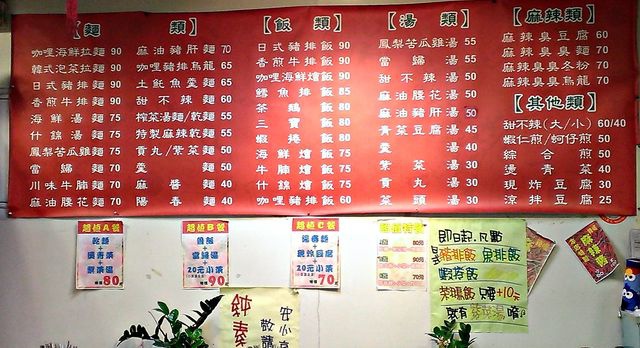 【麵 類】
咖哩海鮮拉麵 90
韓式泡菜拉麵 90
日式豬排麵 90
香煎牛排麵 90
海鮮湯麵 75
什錦湯麵 75
鳳梨苦瓜雞麵 75
當歸麵 50
川味牛腩麵 75
麻油腰花麵 70
麻油豬肝麵 70
咖哩豬排烏龍 65
土魠魚羹麵 65
甜不辣麵 60
榨菜湯麵/乾麵 55
特製麻辣乾麵 55
貢丸/紫菜麵 50
羹麵 50
麻醬麵 40
陽春麵 40
【飯 類】
日式豬排飯 90
香煎牛排飯 90
咖哩海鮮燴飯 90
鱈魚排飯 85
茶鵝飯 80
三寶飯 80
蝦捲飯 80
海鮮燴飯 75
牛腩燴飯 75
什錦燴飯 75
咖哩豬排飯 60
【湯 類】
鳳梨苦瓜雞湯 55
當歸湯 55
甜不辣湯 50
麻油腰花湯 50
麻油豬肝湯 50
青菜豆腐湯 45
羹 40
紫菜湯 30
貢丸湯 30
菜頭湯 30
【麻辣類】
麻辣臭豆腐 60
麻辣臭臭麵 70
麻辣臭臭冬粉 70
麻辣臭臭烏龍 70
【其他類】
甜不辣(大/小) 60/40
蝦仁煎/蚵仔煎 50
綜合煎 50
燙青菜 40
現炸豆腐 30
涼拌豆腐 25
超值A餐
乾麵
+
燙青菜
+
紫菜湯
80
超值B餐
魯飯
+
當歸湯
+
20元小菜
90
超值C餐
陽春麵
+
現炸豆腐
+
20元小菜
70
即日起.凡點
豬排飯 魚排飯
蝦捲飯
茶鵝飯 只要+10元
就有紫菜湯喝